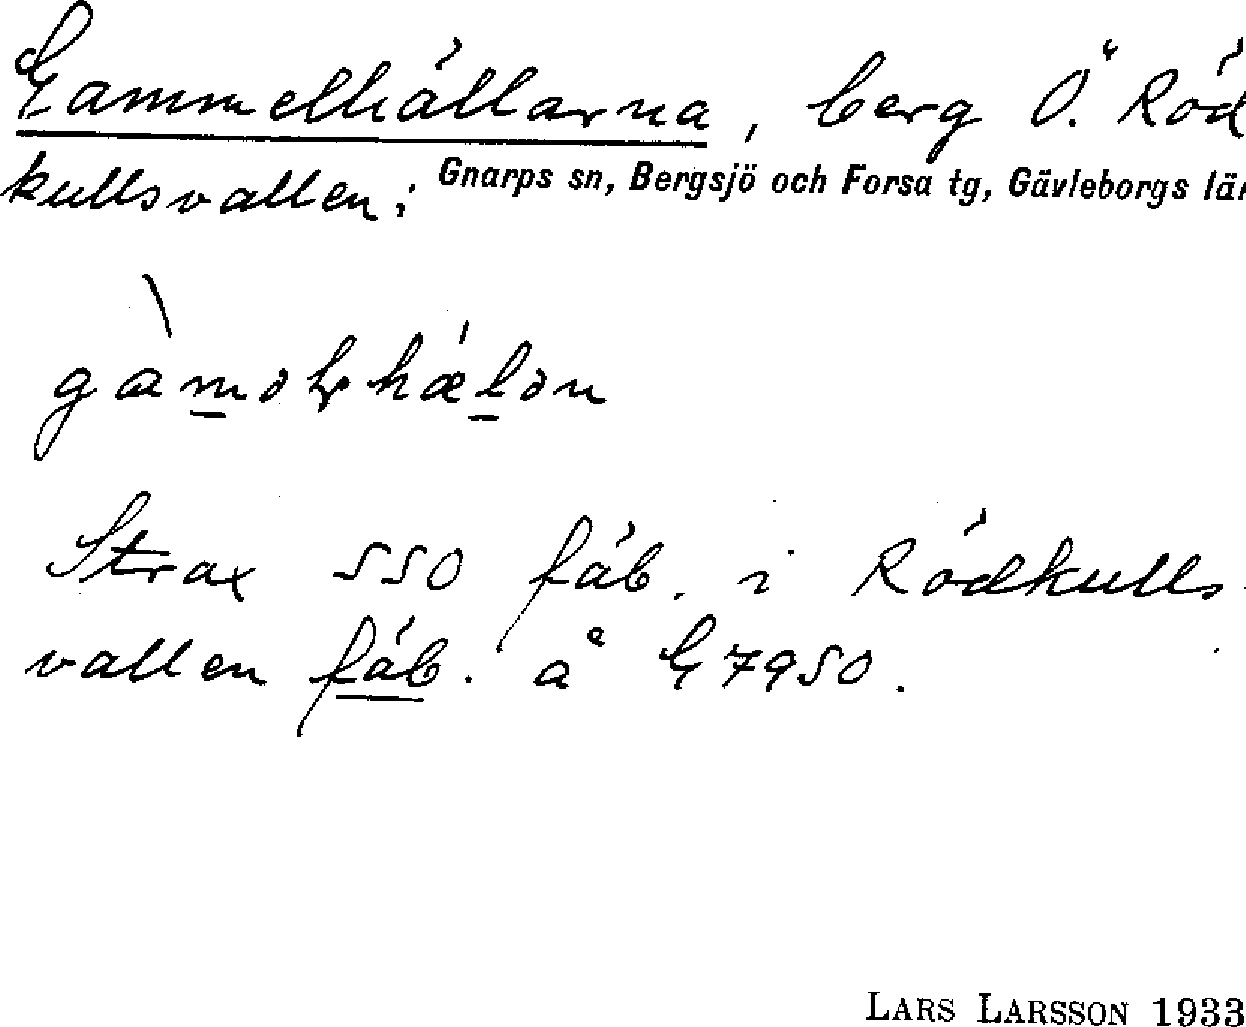 Gammelhällarna, berg Ö. Röd
kullsvallen;
Gnarps sn, Bergsjö och Forsa tg, Gävleborgs län
Strax SSO fäb. i Rödkulls-
vallen fäb. å G7950.
LARS LARSSON 1933